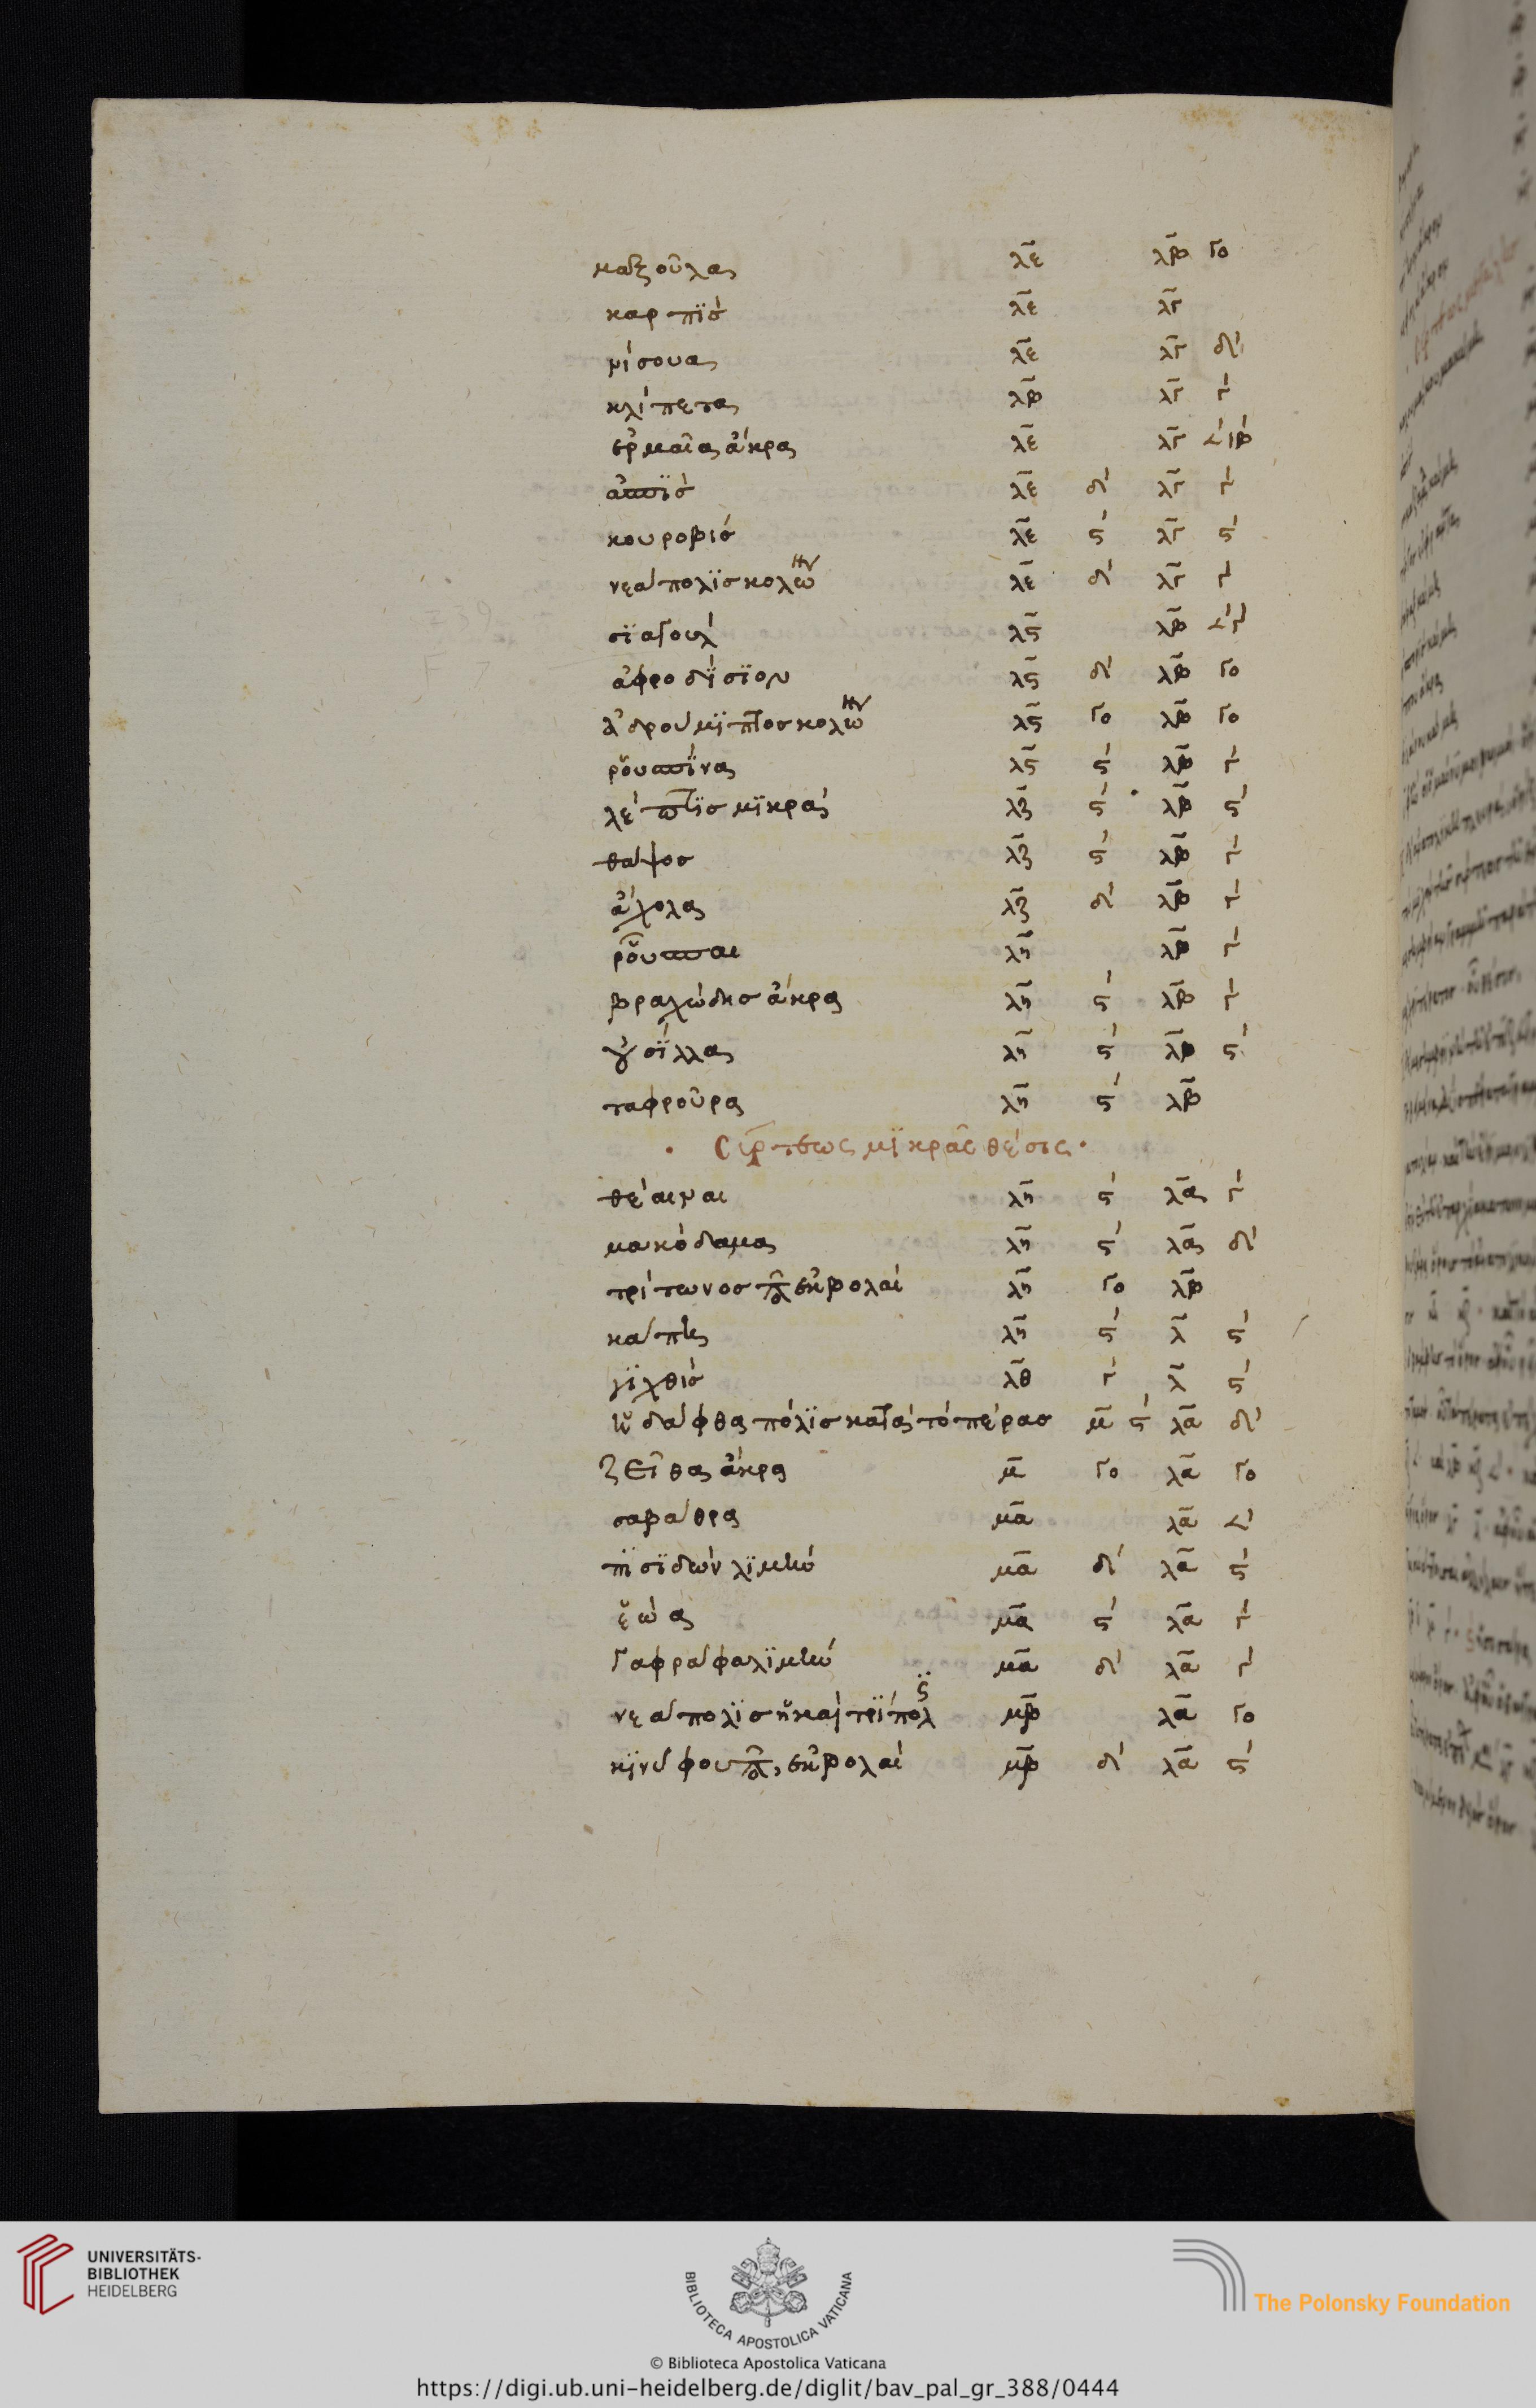 μαξοῦλα λε λβ γο
καρπϊσ λε λγ
μίσουα λε λγ δ
κλίπεια λβ λγ γ
ἑρμαία ἄκρα λε λγ ∠ιβ
ἀσπϊσ λε δ λγ γ
κουροβισ λε ϛ λγ ϛ
νεάπολϊσ κολων λε δ λγ γ
σϊαγουλ λϛ λβ ∠γ
ἀφροδϊσϊον λϛ δ λβ γο
ἀδρούμϊττοσ κολων λϛ γο λβ γο
ῥουσπϊνα λϛ ϛ λβ γ
λέπτϊσ μϊκρά λζ ϛ λβ ϛ
θάψοσ λζ ϛ λβ γ
ἄχολα λζ δ λβ γ
ῥοῦσπαι λη λβ γ
βραχώδησ ἄκρα λη ϛ λβ γ
ψϊλλα λη ϛ λβ ϛ
ταφροῦρα λη ϛ λβ
· Σύρτεως μϊκρᾶς θέσις ·
θέαιναι λη ϛ λα γ
μακόδαμα λη ϛ λα δ
τρίτωνοσ ποτ ἐκβολαί λη γο λβ
κάπη λη ϛ λ ϛ
γϊχθισ λθ γ λ ϛ
δάφθα πόλϊσ κατὰ τὸ πέρασ μ ϛ λα δ
ζεῖθα ἄκρα μ γο λα γο
σαβάθρα μα λα ∠
πϊσϊδών λϊμήν μα δ λα ϛ
ἑώα μα ϛ λα γ
Γαφράφα λϊμήν μα δ λα γ
νεάπολϊσ ἡ καὶ τρϊπολϊς μβ λα γο
κϊνύφου ποτ, ἐκβολαί μβ δ λα ϛ
UNIVERSITÄTS-
BIBLIOTHEK
HEIDELBERG
BIBLIOTECA APOSTOLICA VATICANA
The Polonsky Foundation
© Biblioteca Apostolica Vaticana
https://digi.ub.uni-heidelberg.de/diglit/bav_pal_gr_388/0444